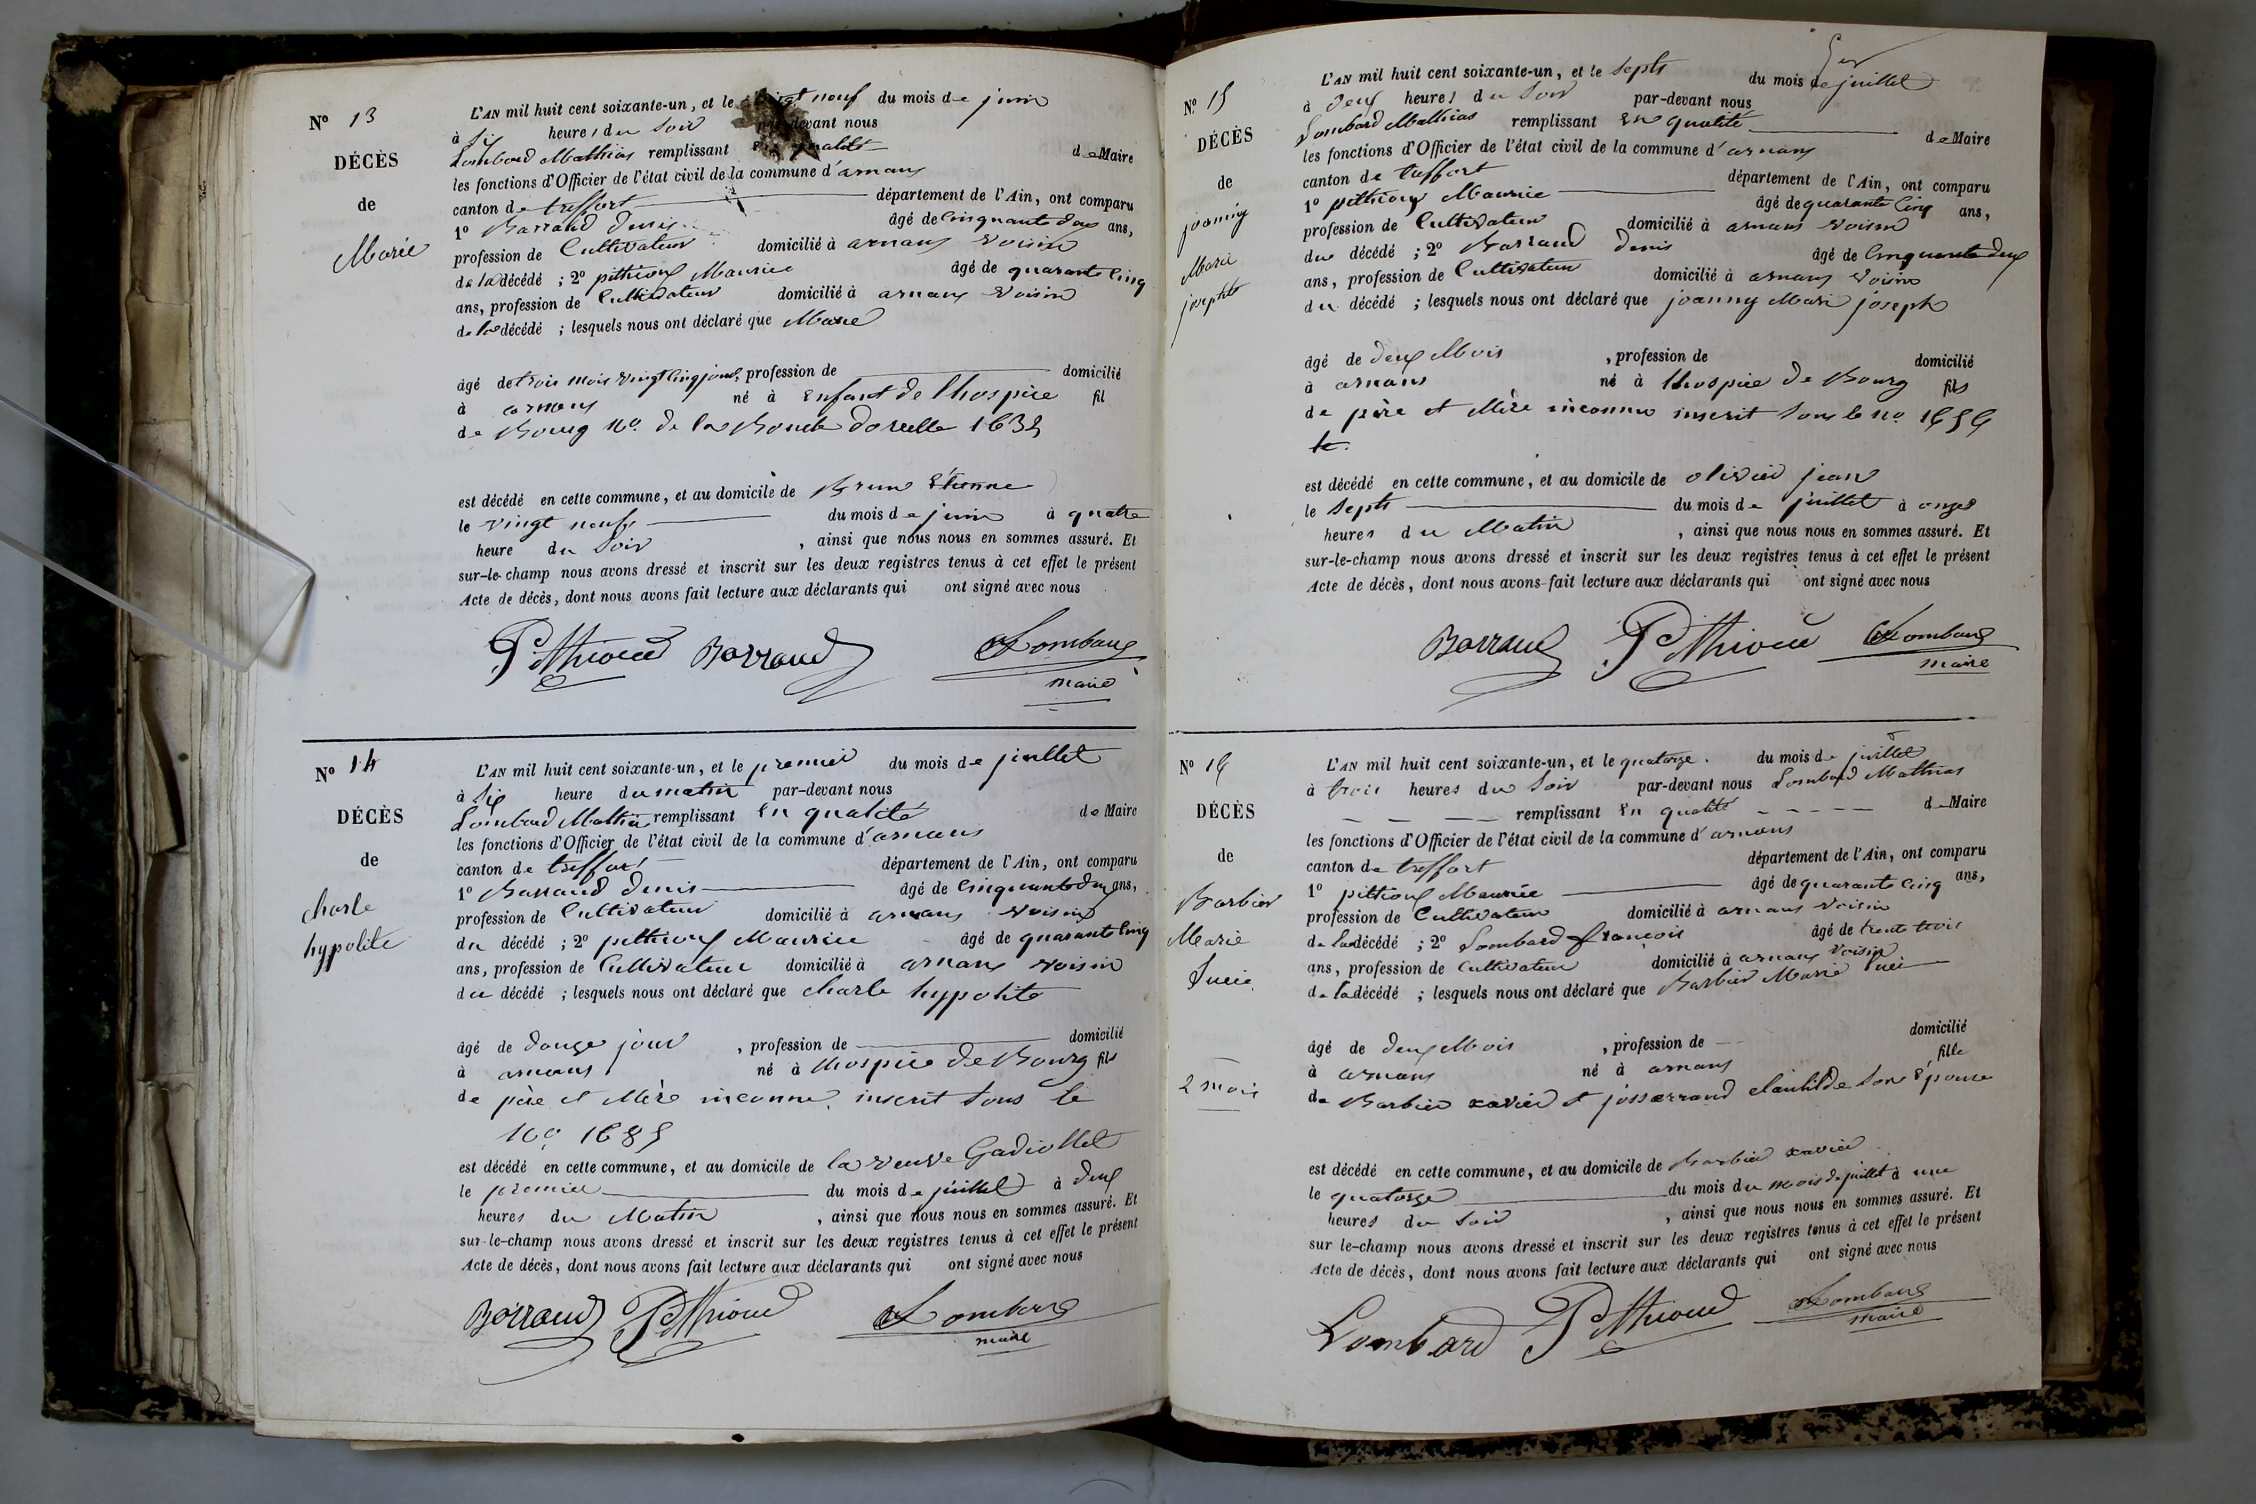 N° 13
DÉCÈS
de
Marie
L'AN mil huit cent soixante-un, et le vingt neuf du mois de juin
à Six heures du Soir par-devant nous
Lombard Mathias remplissant En qualité de Maire
les fonctions d'Officier de l'état civil de la commune d'arnans
canton de treffort département de l'Ain, ont comparu
1° Barraud Denis âgé de Cinquante deux ans,
profession de Cultivateur domicilié à arnans voisin
de la décédé ; 2° pithioux Maurice âgé de quarante Cinq
ans, profession de Cultivateur domicilié à arnans voisin
de la décédé ; lesquels nous ont déclaré que Marie
âgé de trois mois vingt Cinq jours, profession de domicilié
à arnans né à Enfant de lhospice fil
de Bourg No. de la Boucle doreille 1635
est décédé en cette commune, et au domicile de Brun Etienne
le vingt neuf du mois de juin à quatre
heure du Soir , ainsi que nous nous en sommes assuré. Et
sur-le-champ nous avons dressé et inscrit sur les deux registres tenus à cet effet le présent
Acte de décès, dont nous avons fait lecture aux déclarants qui ont signé avec nous
Pithioud Barraud Lombard
maire
N° 14
DÉCÈS
de
charle
hypolite
L'AN mil huit cent soixante-un, et le premier du mois de juillet
à Six heure du matin par-devant nous
Lombard Mathias remplissant En qualité de Maire
les fonctions d'Officier de l'état civil de la commune d'arnans
canton de treffort département de l'Ain, ont comparu
1° Barraud Denis âgé de Cinquante deux ans,
profession de Cultivateur domicilié à arnans voisin
du décédé ; 2° pithioux Maurice âgé de quarante Cinq
ans, profession de Cultivateur domicilié à arnans voisin
du décédé ; lesquels nous ont déclaré que charle hypolite
âgé de douze jour , profession de domicilié
à arnans né à lhospice de Bourg fils
de père et Mère inconnu inscrit Sous le
No. 1685
est décédé en cette commune, et au domicile de la veuve Gadiollet
le premier du mois de juillet à deux
heures du Matin , ainsi que nous nous en sommes assuré. Et
sur-le-champ nous avons dressé et inscrit sur les deux registres tenus à cet effet le présent
Acte de décès, dont nous avons fait lecture aux déclarants qui ont signé avec nous
Barraud Pithioud Lombard
maire
N° 15
DÉCÈS
de
joanny
Marie
josephte
L'AN mil huit cent soixante-un, et le Septs du mois de juillet
à deux heures du Soir par-devant nous
Lombard Mathias remplissant En qualité de Maire
les fonctions d'Officier de l'état civil de la commune d'arnans
canton de treffort département de l'Ain, ont comparu
1° pithioux Maurice âgé de quarante Cinq ans,
profession de Cultivateur domicilié à arnans voisin
du décédé ; 2° Barraud Denis âgé de Cinquante deux
ans, profession de Cultivateur domicilié à arnans voisin
du décédé ; lesquels nous ont déclaré que joanny Marie joseph
âgé de deux Mois , profession de domicilié
à arnans né à lhospice de Bourg fils
de père et Mère inconnu inscrit Sous le no. 1656
te.
est décédé en cette commune, et au domicile de olivier jean
le Septs du mois de juillet à onze
heures du Matin , ainsi que nous nous en sommes assuré. Et
sur-le-champ nous avons dressé et inscrit sur les deux registres tenus à cet effet le présent
Acte de décès, dont nous avons fait lecture aux déclarants qui ont signé avec nous
Barraud Pithioud Lombard
maire
N° 16
DÉCÈS
de
Barbier
Marie
Lucie
2 mois
L'AN mil huit cent soixante-un, et le quatorze du mois de juillet
à trois heures du Soir par-devant nous Lombard Mathias
remplissant En qualité de Maire
les fonctions d'Officier de l'état civil de la commune d'arnans
canton de treffort département de l'Ain, ont comparu
1° pithioux Maurice âgé de quarante Cinq ans,
profession de Cultivateur domicilié à arnans voisin
de la décédé ; 2° Lombard françois âgé de trente trois
ans, profession de Cultivateur domicilié à arnans voisin
de la décédé ; lesquels nous ont déclaré que Barbier Marie Lucie
âgé de deux Mois , profession de domicilié
à arnans né à arnans fille
de Barbier xavier et josserrand clautilde Son Epouse
est décédé en cette commune, et au domicile de Barbier xavier
le quatorze du mois du mois de juillet à une
heures du Soir , ainsi que nous nous en sommes assuré. Et
sur le-champ nous avons dressé et inscrit sur les deux registres tenus à cet effet le présent
Acte de décès, dont nous avons fait lecture aux déclarants qui ont signé avec nous
Lombard Pithioud Lombard
maire